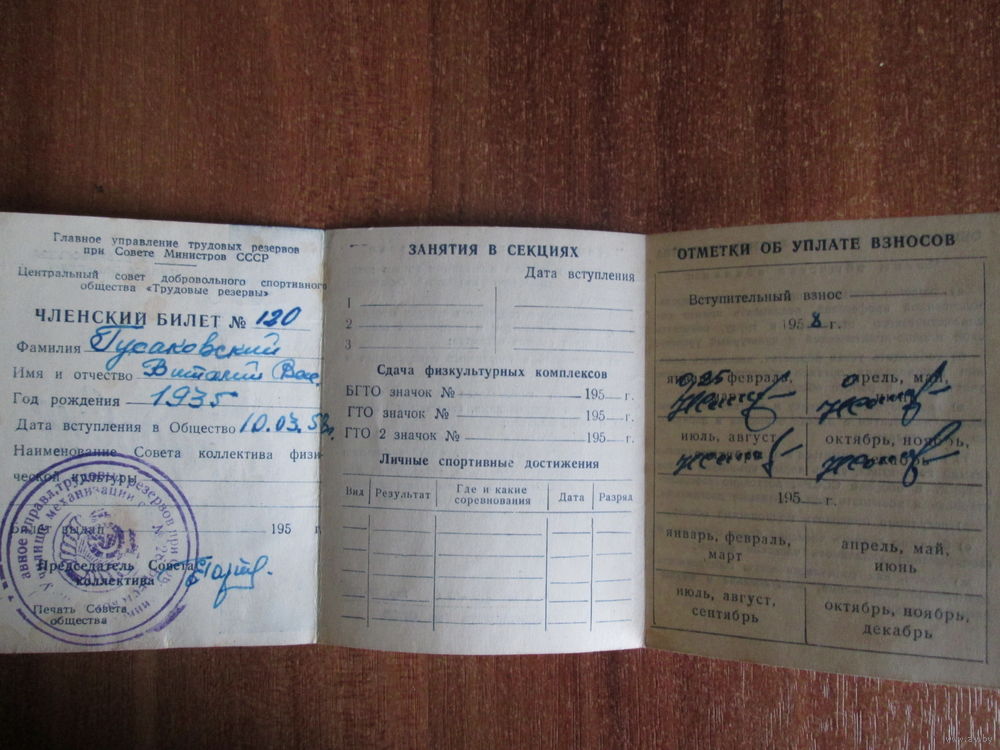 Главное управление трудовых резервов
при Совете Министров СССР
Центральный совет добровольного спортивного
общества «Трудовые резервы»
ЧЛЕНСКИЙ БИЛЕТ № 120
Фамилия Гусаковский
Имя и отчество Виталий Вас.
Год рождения 1935
Дата вступления в Общество 10.03.58г.
Наименование Совета коллектива физи-
ческой культуры
Билет выдан 195 г.
Председатель Совета
коллектива
Печать Совета
общества
ЗАНЯТИЯ В СЕКЦИЯХ
Дата вступления
1
2
3
Сдача физкультурных комплексов
БГТО значок № 195 г.
ГТО значок № 195 г.
ГТО 2 значок № 195 г.
Личные спортивные достижения
Вид Результат Где и какие соревнования Дата Разряд
ОТМЕТКИ ОБ УПЛАТЕ ВЗНОСОВ
Вступительный взнос
1958 г.
январь, февраль, март
апрель, май, июнь
июль, август, сентябрь
октябрь, ноябрь, декабрь
195 г.
январь, февраль,
март
апрель, май,
июнь
июль, август,
сентябрь
октябрь, ноябрь,
декабрь
www.ay.by